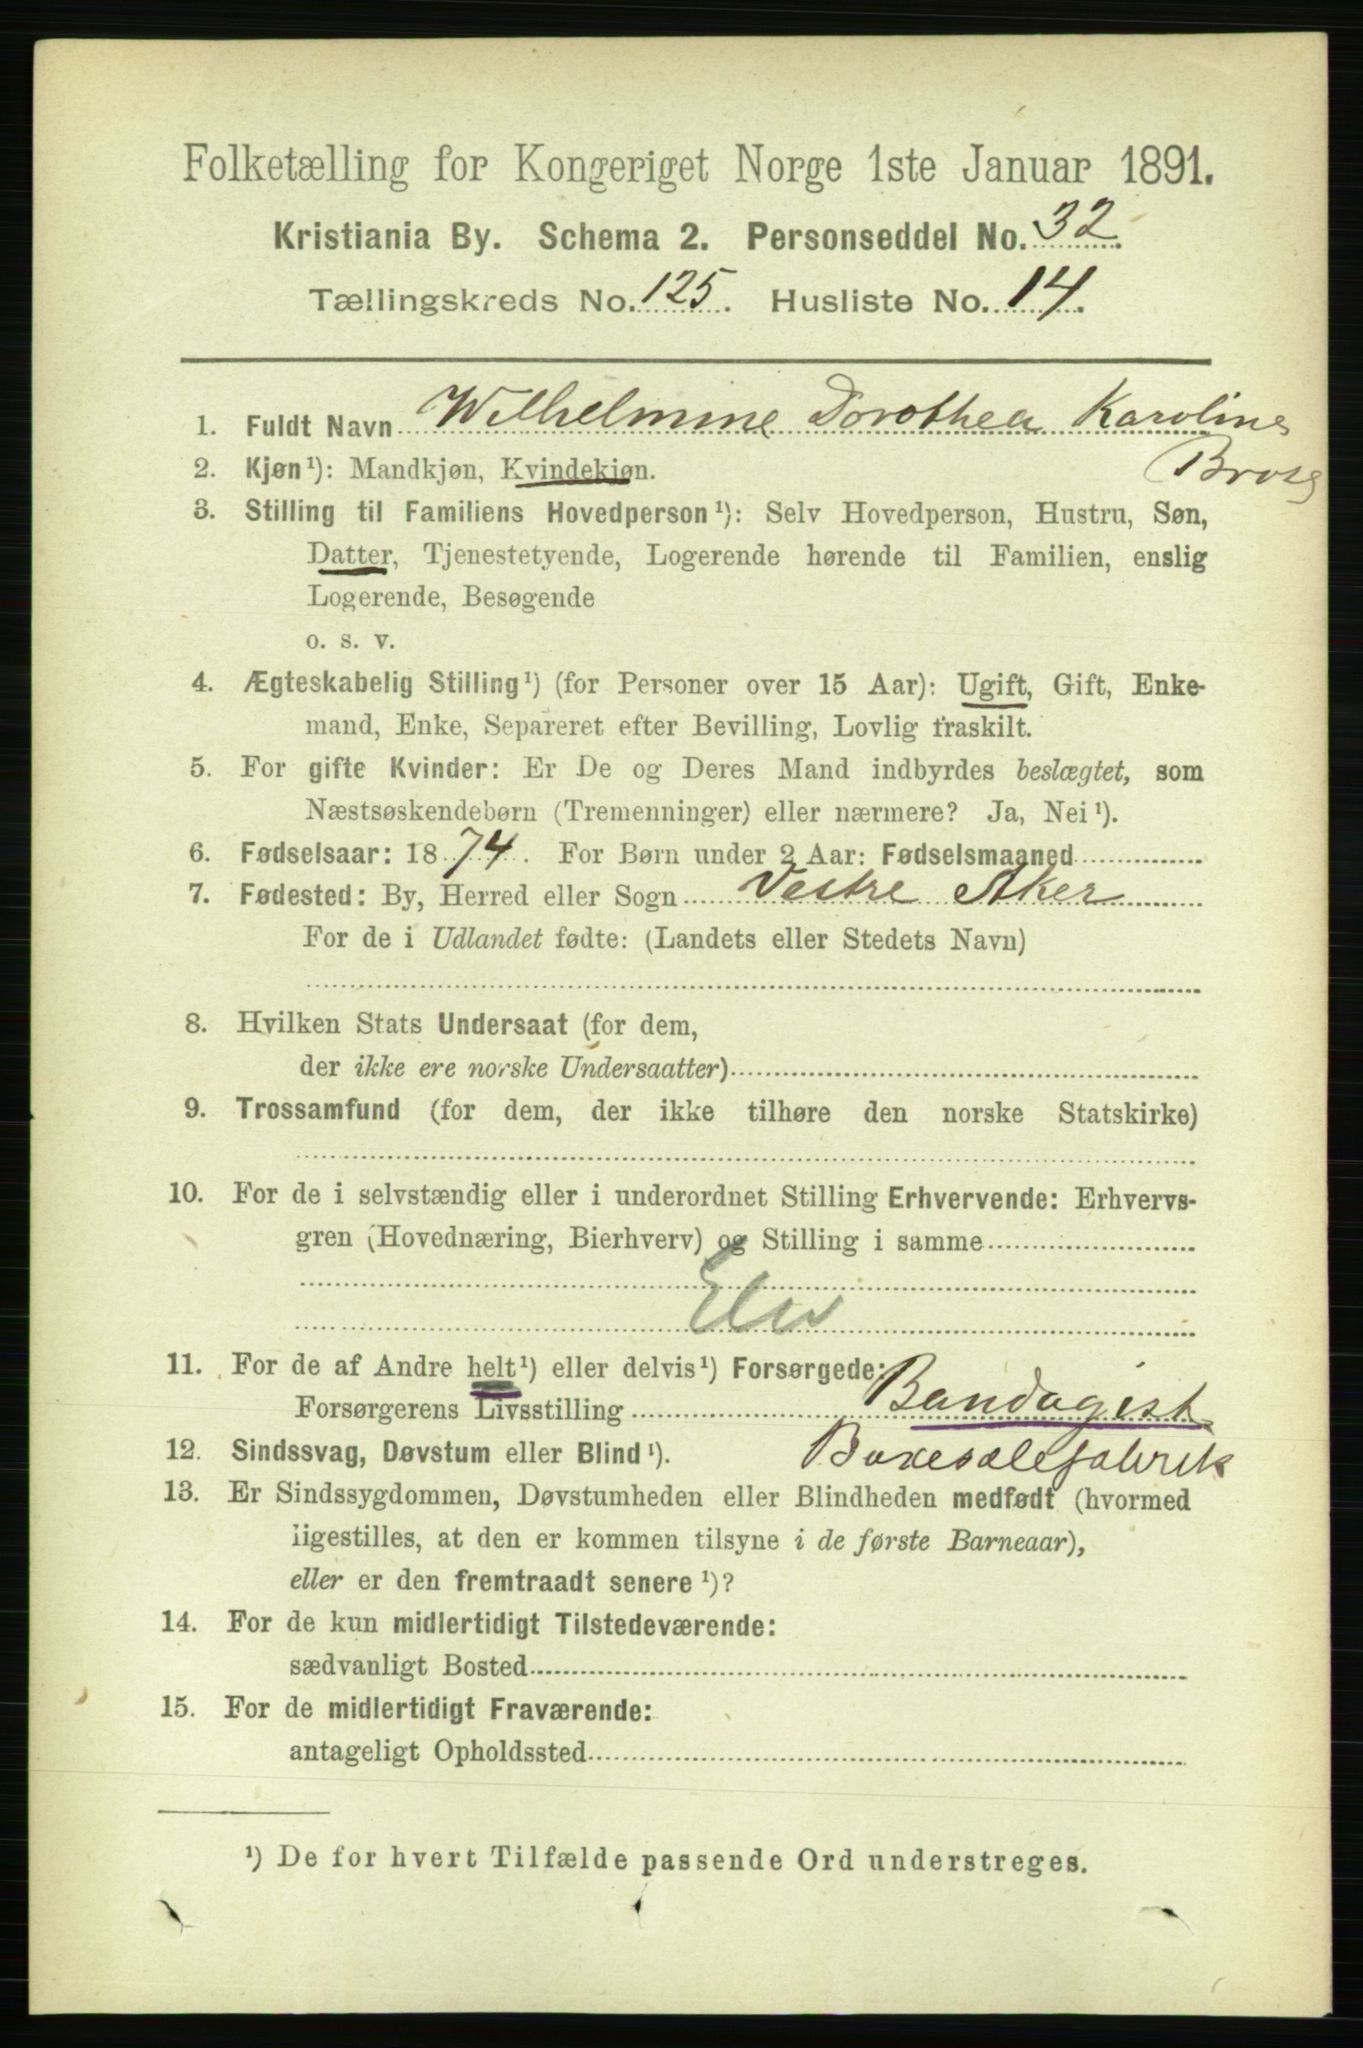 Folketælling for Kongeriget Norge 1ste Januar 1891.
Kristiania By. Schema 2. Personseddel No. 32.
Tællingskreds No. 125. Husliste No. 14.
1. Fuldt Navn Wilhelmine Dorothea Karoline
2. Kjøn ¹): Mandkjøn, Kvindekjøn.
3. Stilling til Familiens Hovedperson ¹): Selv Hovedperson, Hustru, Søn,
Datter, Tjenestetyende, Logerende hørende til Familien, enslig
Logerende, Besøgende
o. s. v.
4. Ægteskabelig Stilling ¹) (for Personer over 15 Aar): Ugift, Gift, Enke-
mand, Enke, Separeret efter Bevilling, Lovlig fraskilt.
5. For gifte Kvinder: Er De og Deres Mand indbyrdes beslægtet, som
Næstsøskendebørn (Tremenninger) eller nærmere? Ja, Nei ¹).
6. Fødselsaar: 1874. For Børn under 2 Aar: Fødselsmaaned
7. Fødested: By, Herred eller Sogn Vestre Aker
For de i Udlandet fødte: (Landets eller Stedets Navn)
8. Hvilken Stats Undersaat (for dem,
der ikke ere norske Undersaatter)
9. Trossamfund (for dem, der ikke tilhøre den norske Statskirke)
10. For de i selvstændig eller i underordnet Stilling Erhvervende: Erhvervs-
gren (Hovednæring, Bierhverv) og Stilling i samme
11. For de af Andre helt ¹) eller delvis ¹) Forsørgede:
Forsørgerens Livsstilling Bandagist
12. Sindssvag, Døvstum eller Blind ¹). Buxeselefabrik
13. Er Sindssygdommen, Døvstumheden eller Blindheden medfødt (hvormed
ligestilles, at den er kommen tilsyne i de første Barneaar),
eller er den fremtraadt senere ¹)?
14. For de kun midlertidigt Tilstedeværende:
sædvanligt Bosted
15. For de midlertidigt Fraværende:
antageligt Opholdssted
¹) De for hvert Tilfælde passende Ord understreges.